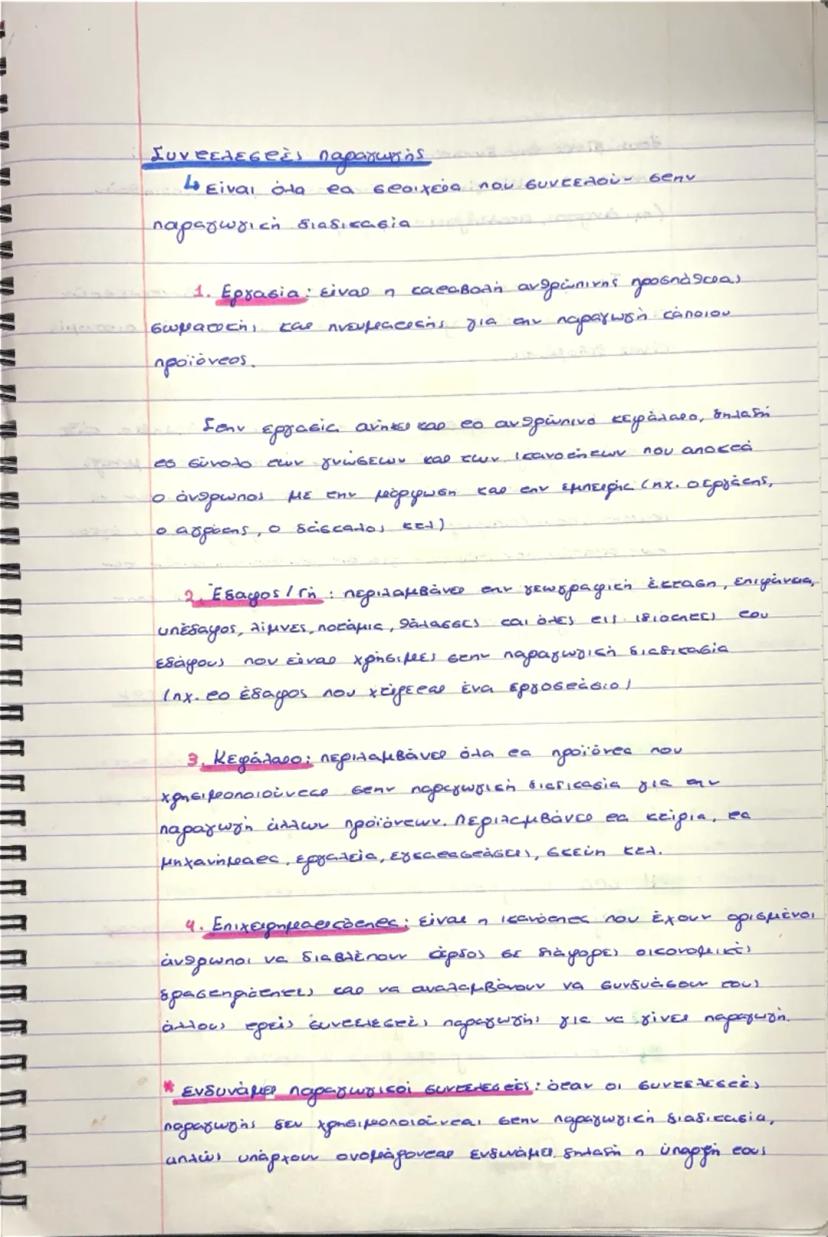 Συντελεστές παραγωγής
↳ Είναι όλα τα στοιχεία που συντελούν στην
παραγωγική διαδικασία
1. Εργασία: είναι η καταβολή ανθρώπινης προσπάθειας
σωματικής και πνευματικής για την παραγωγή κάποιου
προϊόντος.
Στην εργασία ανήκει και το ανθρώπινο κεφάλαιο, δηλαδή
το σύνολο των γνώσεων και των ικανοτήτων που αποκτά
ο άνθρωπος με την μόρφωση και την εμπειρία (πχ. ο εργάτης,
ο αγρότης, ο δάσκαλος κτλ)
2. Έδαφος/Γή: περιλαμβάνει την γεωγραφική έκταση, επιφάνεια,
υπέδαφος, λίμνες, ποτάμια, θάλασσες και όλες τις ιδιότητες του
εδάφους που είναι χρήσιμες στην παραγωγική διαδικασία
(πχ. το έδαφος που χτίζεται ένα εργοστάσιο)
3. Κεφάλαιο: περιλαμβάνει όλα τα προϊόντα που
χρησιμοποιούνται στην παραγωγική διαδικασία για την
παραγωγή άλλων προϊόντων. Περιλαμβάνει τα κτίρια, τα
μηχανήματα, εργαλεία, εγκαταστάσεις, σκεύη κτλ.
4. Επιχειρηματικότητα: είναι η ικανότητα που έχουν ορισμένοι
άνθρωποι να διαβλέπουν κέρδος σε διάφορες οικονομικές
δραστηριότητες και να αναλαμβάνουν να συνδυάσουν τους
άλλους τρείς συντελεστές παραγωγής για να γίνει παραγωγή.
* Ενδυνάμει παραγωγικοί συντελεστές: όταν οι συντελεστές
παραγωγής δεν χρησιμοποιούνται στην παραγωγική διαδικασία,
απλώς υπάρχουν ονομάζονται ενδυνάμει δηλαδή η ύπαρξή τους